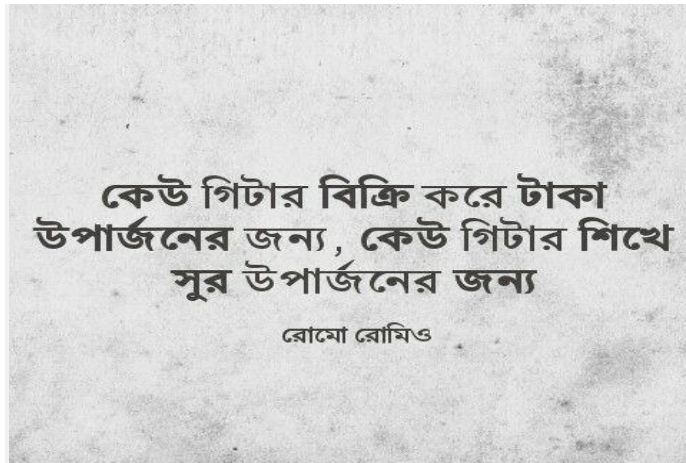 কেউ গিটার বিক্রি করে টাকা
উপার্জনের জন্য, কেউ গিটার শিখে
সুর উপার্জনের জন্য
রোমো রোমিও